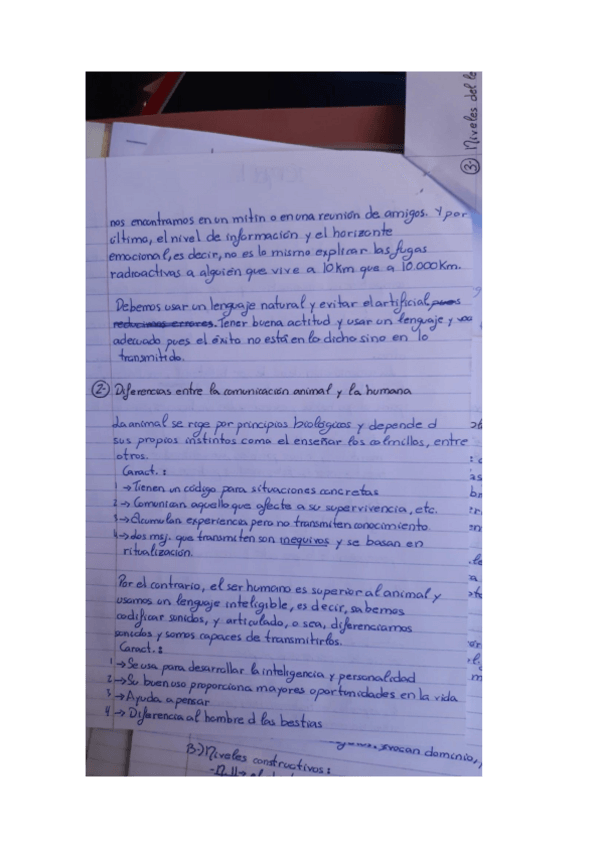 3- Niveles del le
nos encontramos en un mitin o en una reunión de amigos. Y por
último, el nivel de información y el horizonte
emocional, es decir, no es lo mismo explicar las fugas
radroactivas a alguien que vive a 10km que a 10.000Km.
Debemos usar un lenguaje natural y evitar el artificial, pues
reducimos errores. Tener buena actitud y usar un lenguaje y voo
adecuado pues el éxito no está en lo dicho sino en lo
transmitido.
2- Diferencias entre la comunicación animal y la humana
La animal se rige por principios biológicos y depende d
sus propios instintos como el enseñar los colmillos, entre
otros.
Caract.:
1 → Tienen un código para situaciones concretas
2 → Comunican aquello que afecte a su supervivencia, etc.
3 → Acumulan experiencia pero no transmiten conocimiento.
4 → Los msj. que transmiten son inequivos y se basan en
ritualización.
Por el contrario, el ser humano es superior al animal y
usamos un lenguaje inteligible, es decir, sabemos
codificar sonidos, y articulado, o sea, diferenciamos
sonidos y somos capaces de transmitirlos.
Caract.:
1 → Se usa para desarrollar la inteligencia y personalidad
2 → Su buen uso proporciona mayores oportunidades en la vida
3 → Ayuda a pensar
4 → Diferencia al hombre d las bestias
evocan dominio,
B-) Niveles constructivos: